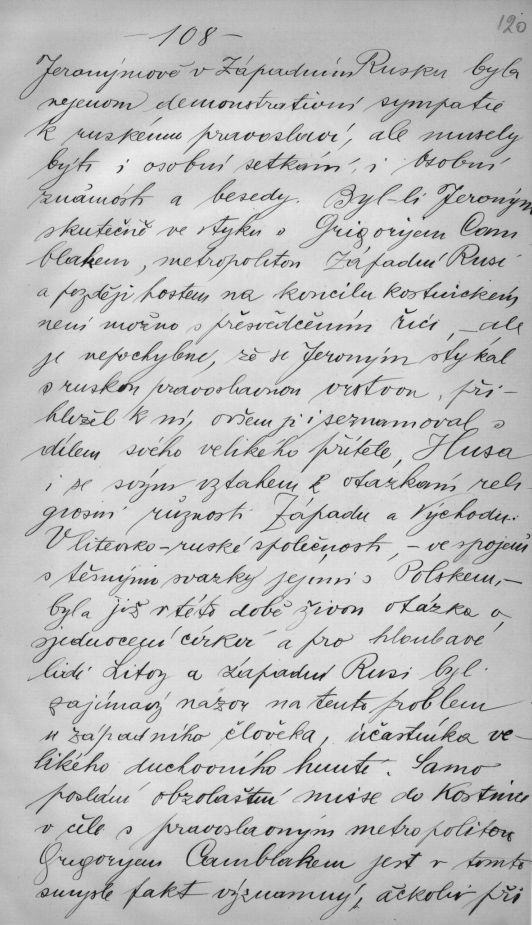 120
-108-
Jeronýmově v Západním Rusku byla
nejenom demonstrativní sympatie
k ruskému pravoslaví, ale musely
býti i osobní setkání, i osobní
známosti a besedy. Byl-li Jeroným
skutečně ve styku s Grigorijem Cam
blakem, metropolitou Západní Rusi
a později hostem na koncilu kostnickém
není možno s přesvědčením říci, – ale
je nepochybné, že se Jeroným stýkal
s ruskou pravoslavnou vrstvou, při-
hlížel k ní, ovšem ji i seznamoval s
dílem svého velikého přítele, Husa
i se svým vztahem k otázkám reli-
giosní různosti Západu a Východu.
V litevsko-ruské společnosti, – ve spojení
s těsnými svazky jejími s Polskem, –
byla již v této době živou otázka o
sjednocení církví a pro hloubavé
lidi Litvy a Západní Rusi byl
zajímavý názor na tento problem
u západního člověka, účastníka ve-
likého duchovního hnutí. Samo
poslání obzvláštní misse do Kostnice
v čele s pravoslavným metropolitou
Grigorijem Camblakem jest v tomto
smysle fakt významný, ačkoliv při